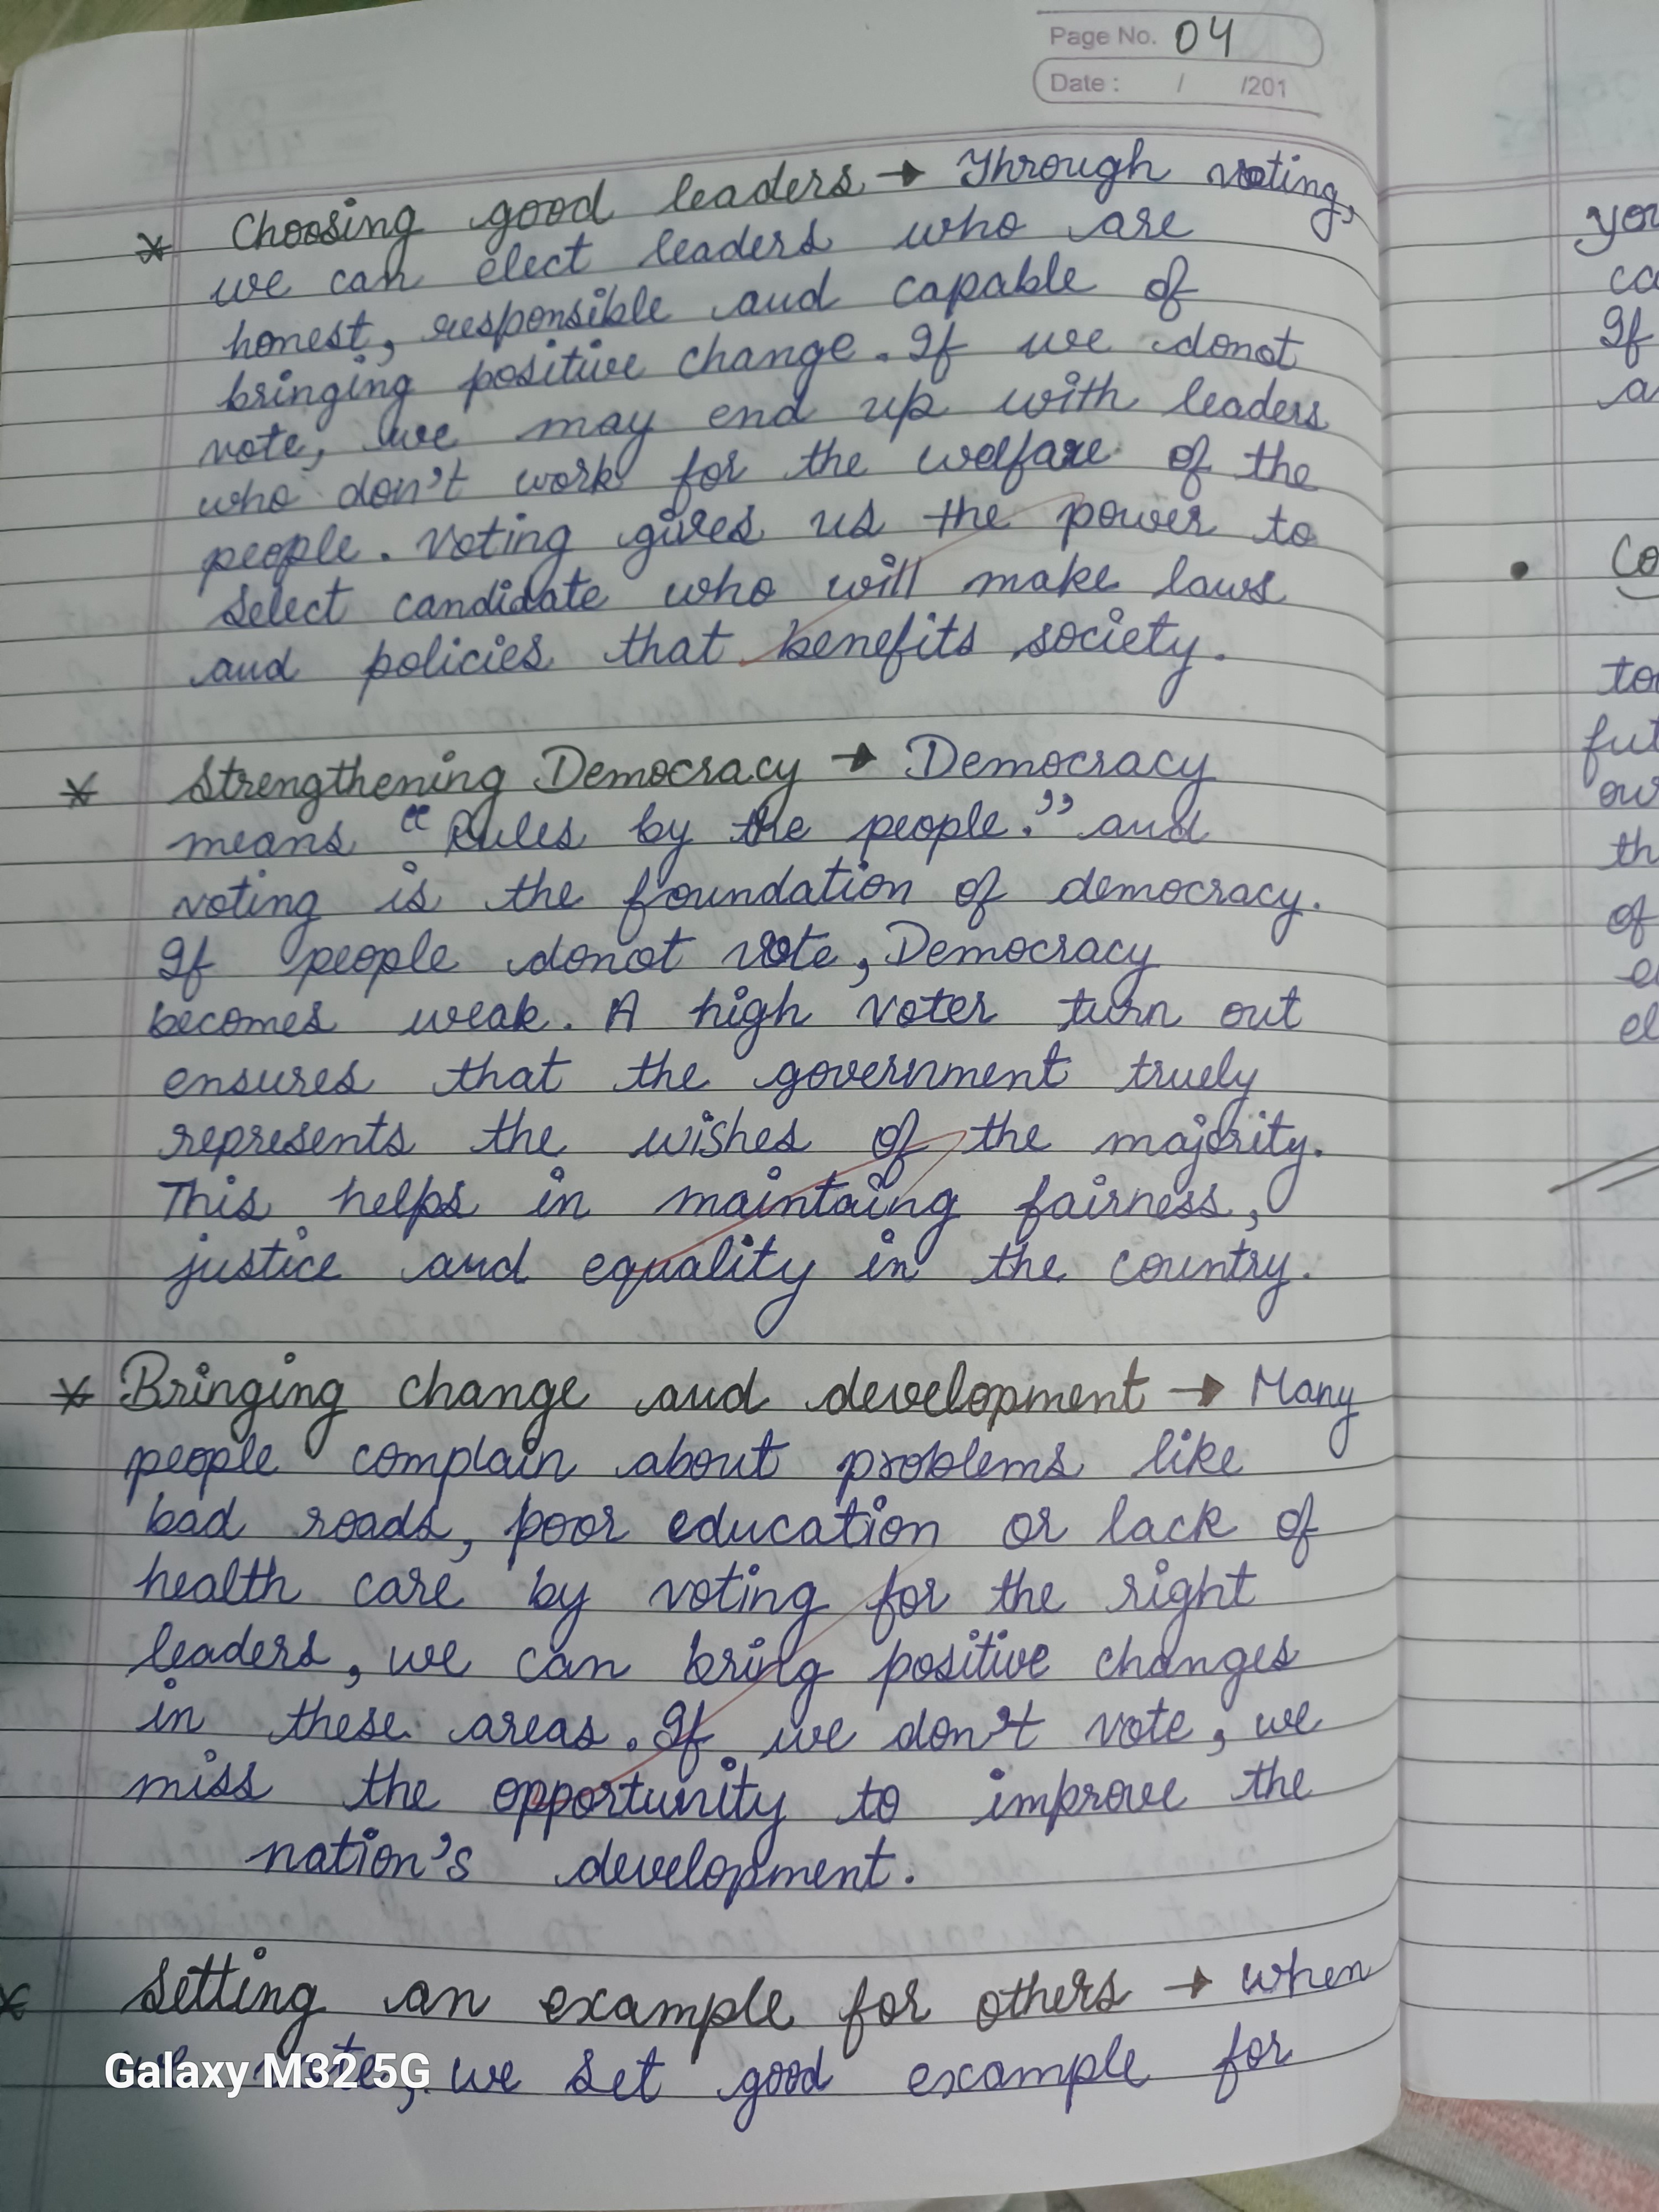 Page No. 04
Date : / /201
* Choosing good leaders → Through voting,
we can elect leaders who are
honest, responsible and capable of
bringing positive change. If we donot
vote, we may end up with leaders
who don't work for the welfare of the
people. Voting gives us the power to
select candidate who will make laws
and policies that benefits society.
* Strengthening Democracy → Democracy
means "Rules by the people." and
voting is the foundation of democracy.
If people donot vote, Democracy
becomes weak. A high voter turn out
ensures that the government truely
represents the wishes of the majority.
This helps in maintaing fairness,
justice and equality in the country.
* Bringing change and development → Many
people complain about problems like
bad roads, poor education or lack of
health care by voting for the right
leaders, we can bring positive changes
in these areas. If we don't vote, we
miss the opportunity to improve the
nation's development.
* Setting an example for others → when
we vote, we set good example for
Galaxy M32 5G
If
of